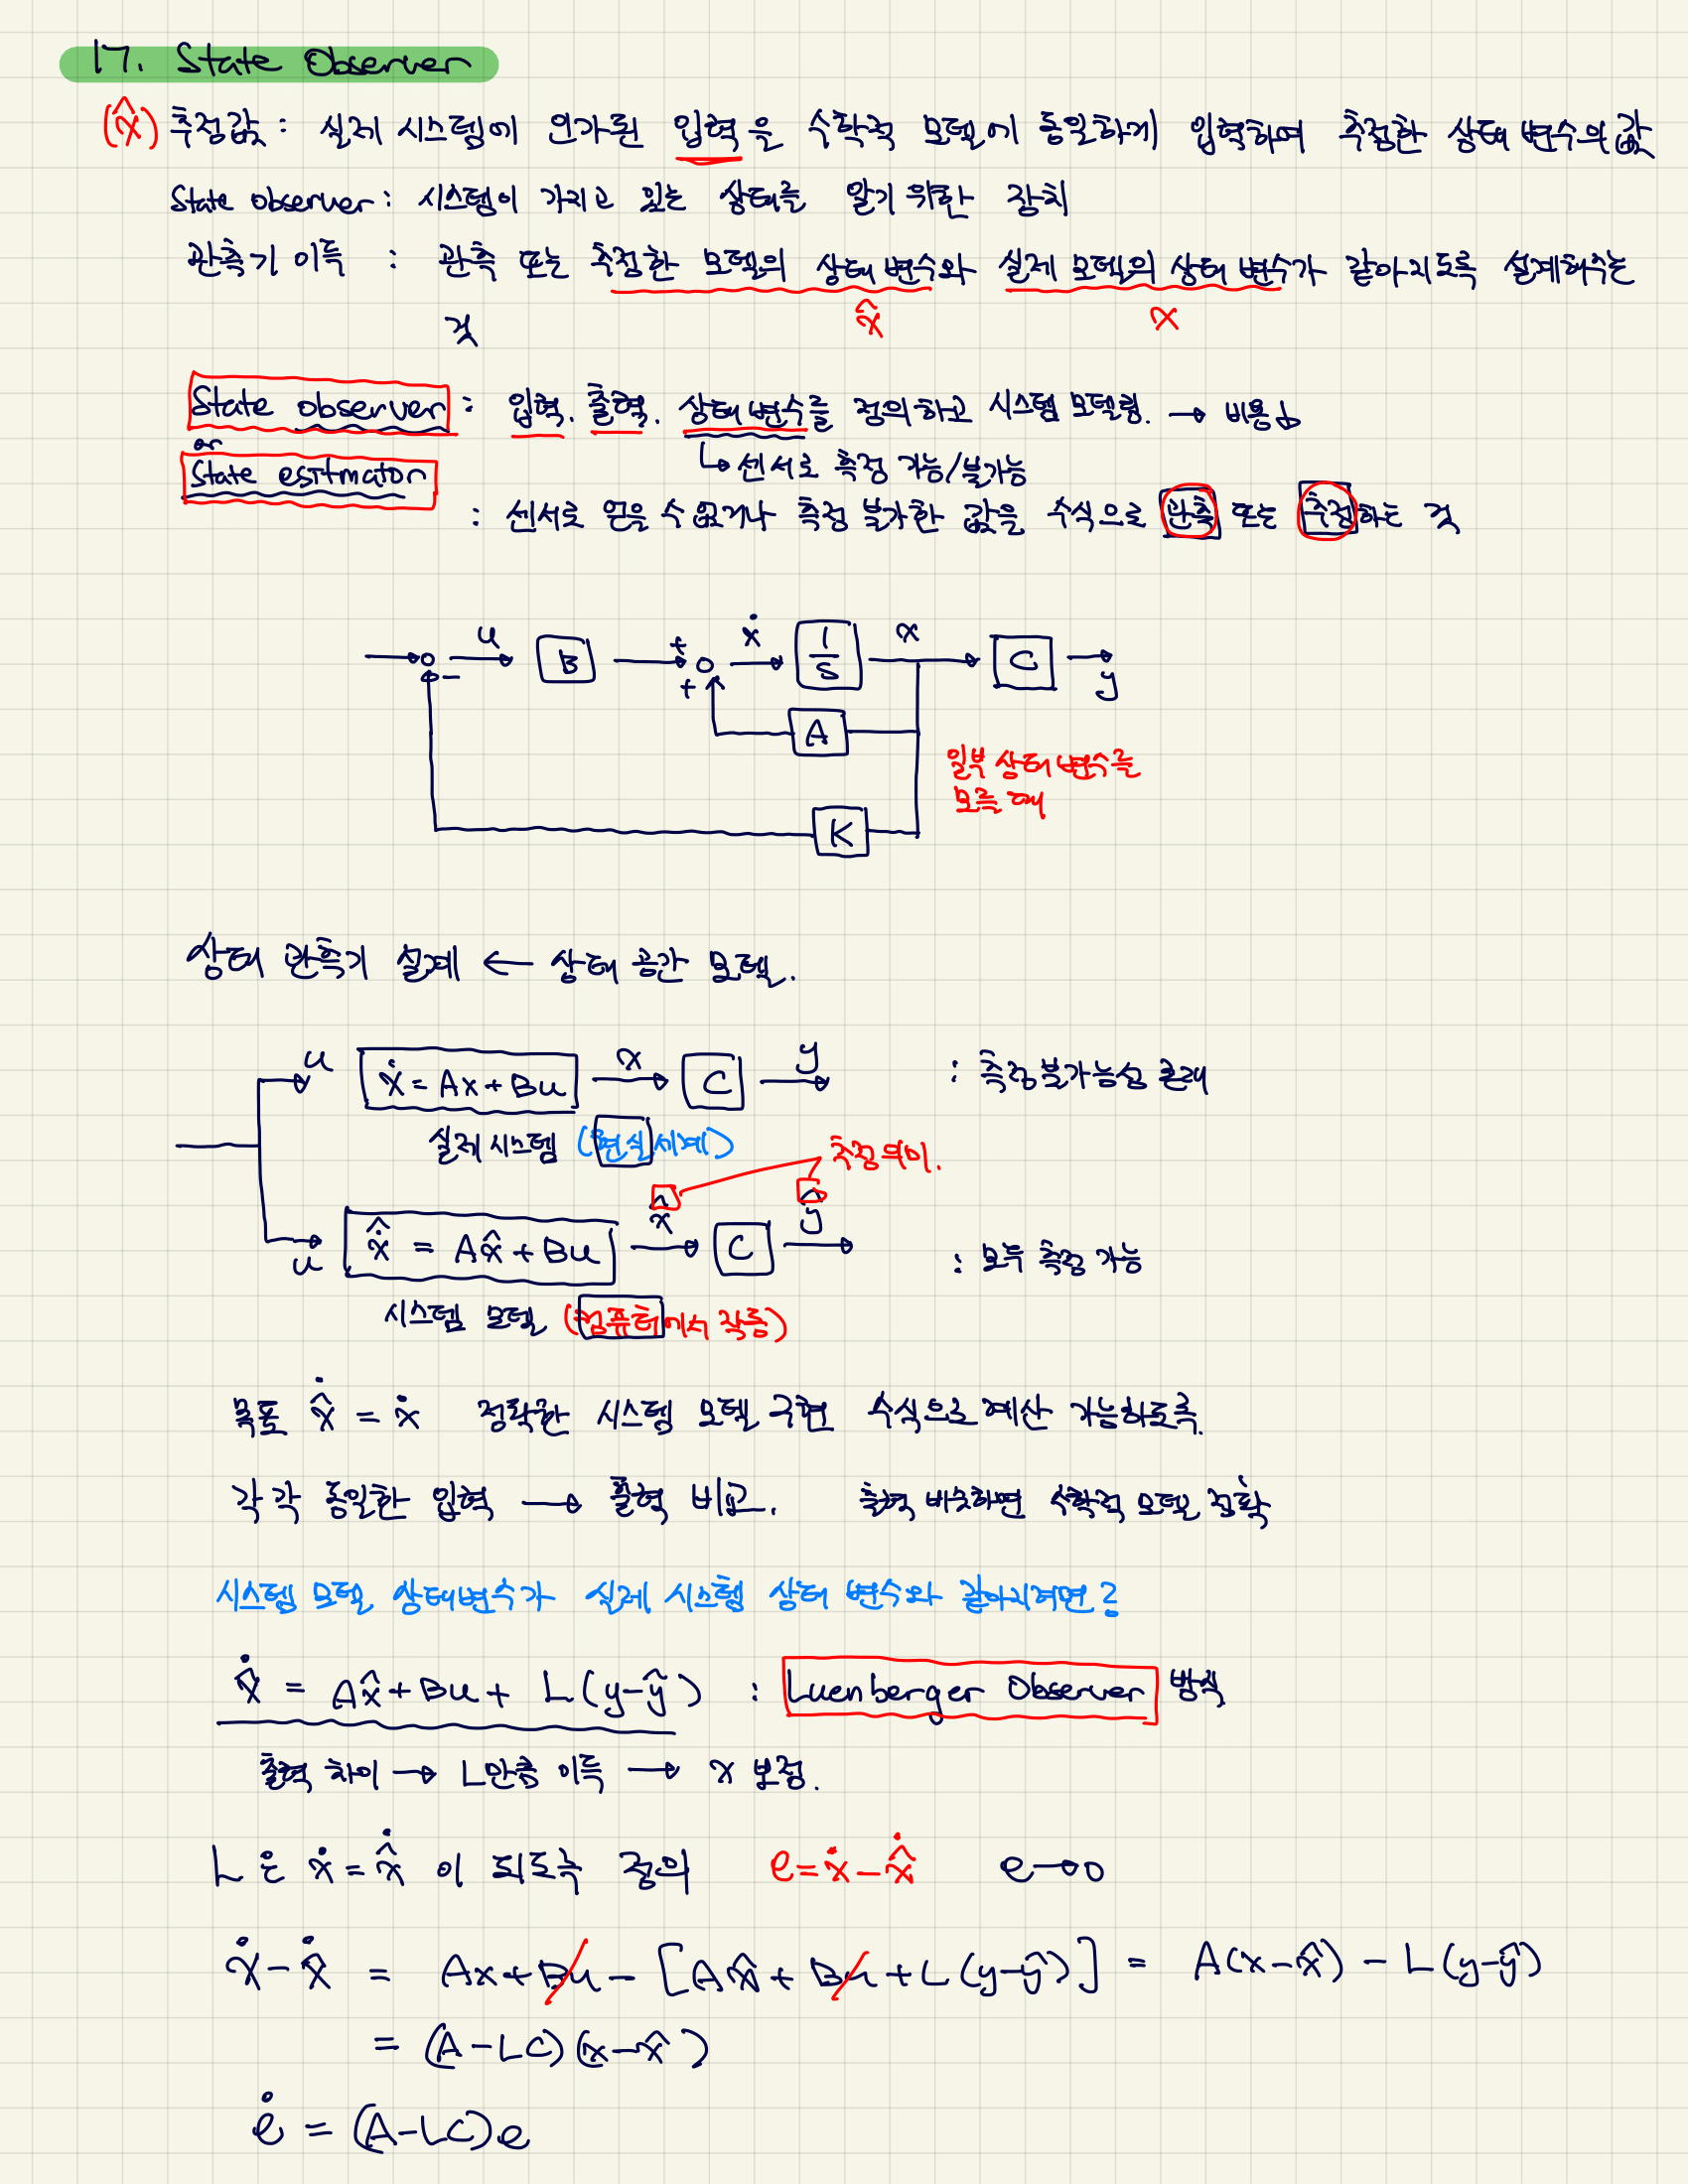 17. State Observer
(x̂) 추정값 : 실제 시스템에 인가된 입력을 수학적 모델에 동일하게 입력하여 추정한 상태 변수의 값
State observer : 시스템이 가지고 있는 상태를 알기 위한 장치
관측기 이득 : 관측 또는 추정한 모델의 상태 변수와 실제 모델의 상태 변수가 같아지도록 설계해주는
것 x̂ x
State observer : 입력, 출력, 상태 변수를 정의하고 시스템 모델링. → 비용↓
or ↳ 센서로 측정 가능/불가능
State estimator
: 센서로 얻을 수 없거나 측정 불가한 값을 수식으로 관측 또는 추정하는 것
u B + + ẋ 1/s x C y
−
A
일부 상태 변수를
모를 때
K
상태 관측기 설계 ← 상태 공간 모델.
u ẋ = Ax + Bu x C y : 측정 불가능성 존재
실제 시스템 (현실세계)
추정의미.
u x̂̇ = Ax̂ + Bu x̂ C ŷ : 모두 측정 가능
시스템 모델 (컴퓨터에서 작동)
목표 x̂̇ = ẋ 정확한 시스템 모델 구현 수식으로 계산 가능하도록.
각각 동일한 입력 → 출력 비교. 출력 비슷하면 수학적 모델 정확
시스템 모델 상태변수가 실제 시스템 상태 변수와 같아지려면?
x̂̇ = Ax̂ + Bu + L(y-ŷ) : Luenberger Observer 방식
출력 차이 → L만큼 이득 → x 보정.
L은 ẋ = x̂̇ 이 되도록 정의 e = ẋ - x̂̇ e→0
ẋ - x̂̇ = Ax + Bu - [Ax̂ + Bu + L(y-ŷ)] = A(x-x̂) - L(y-ŷ)
= (A-LC)(x-x̂)
ė = (A-LC)e